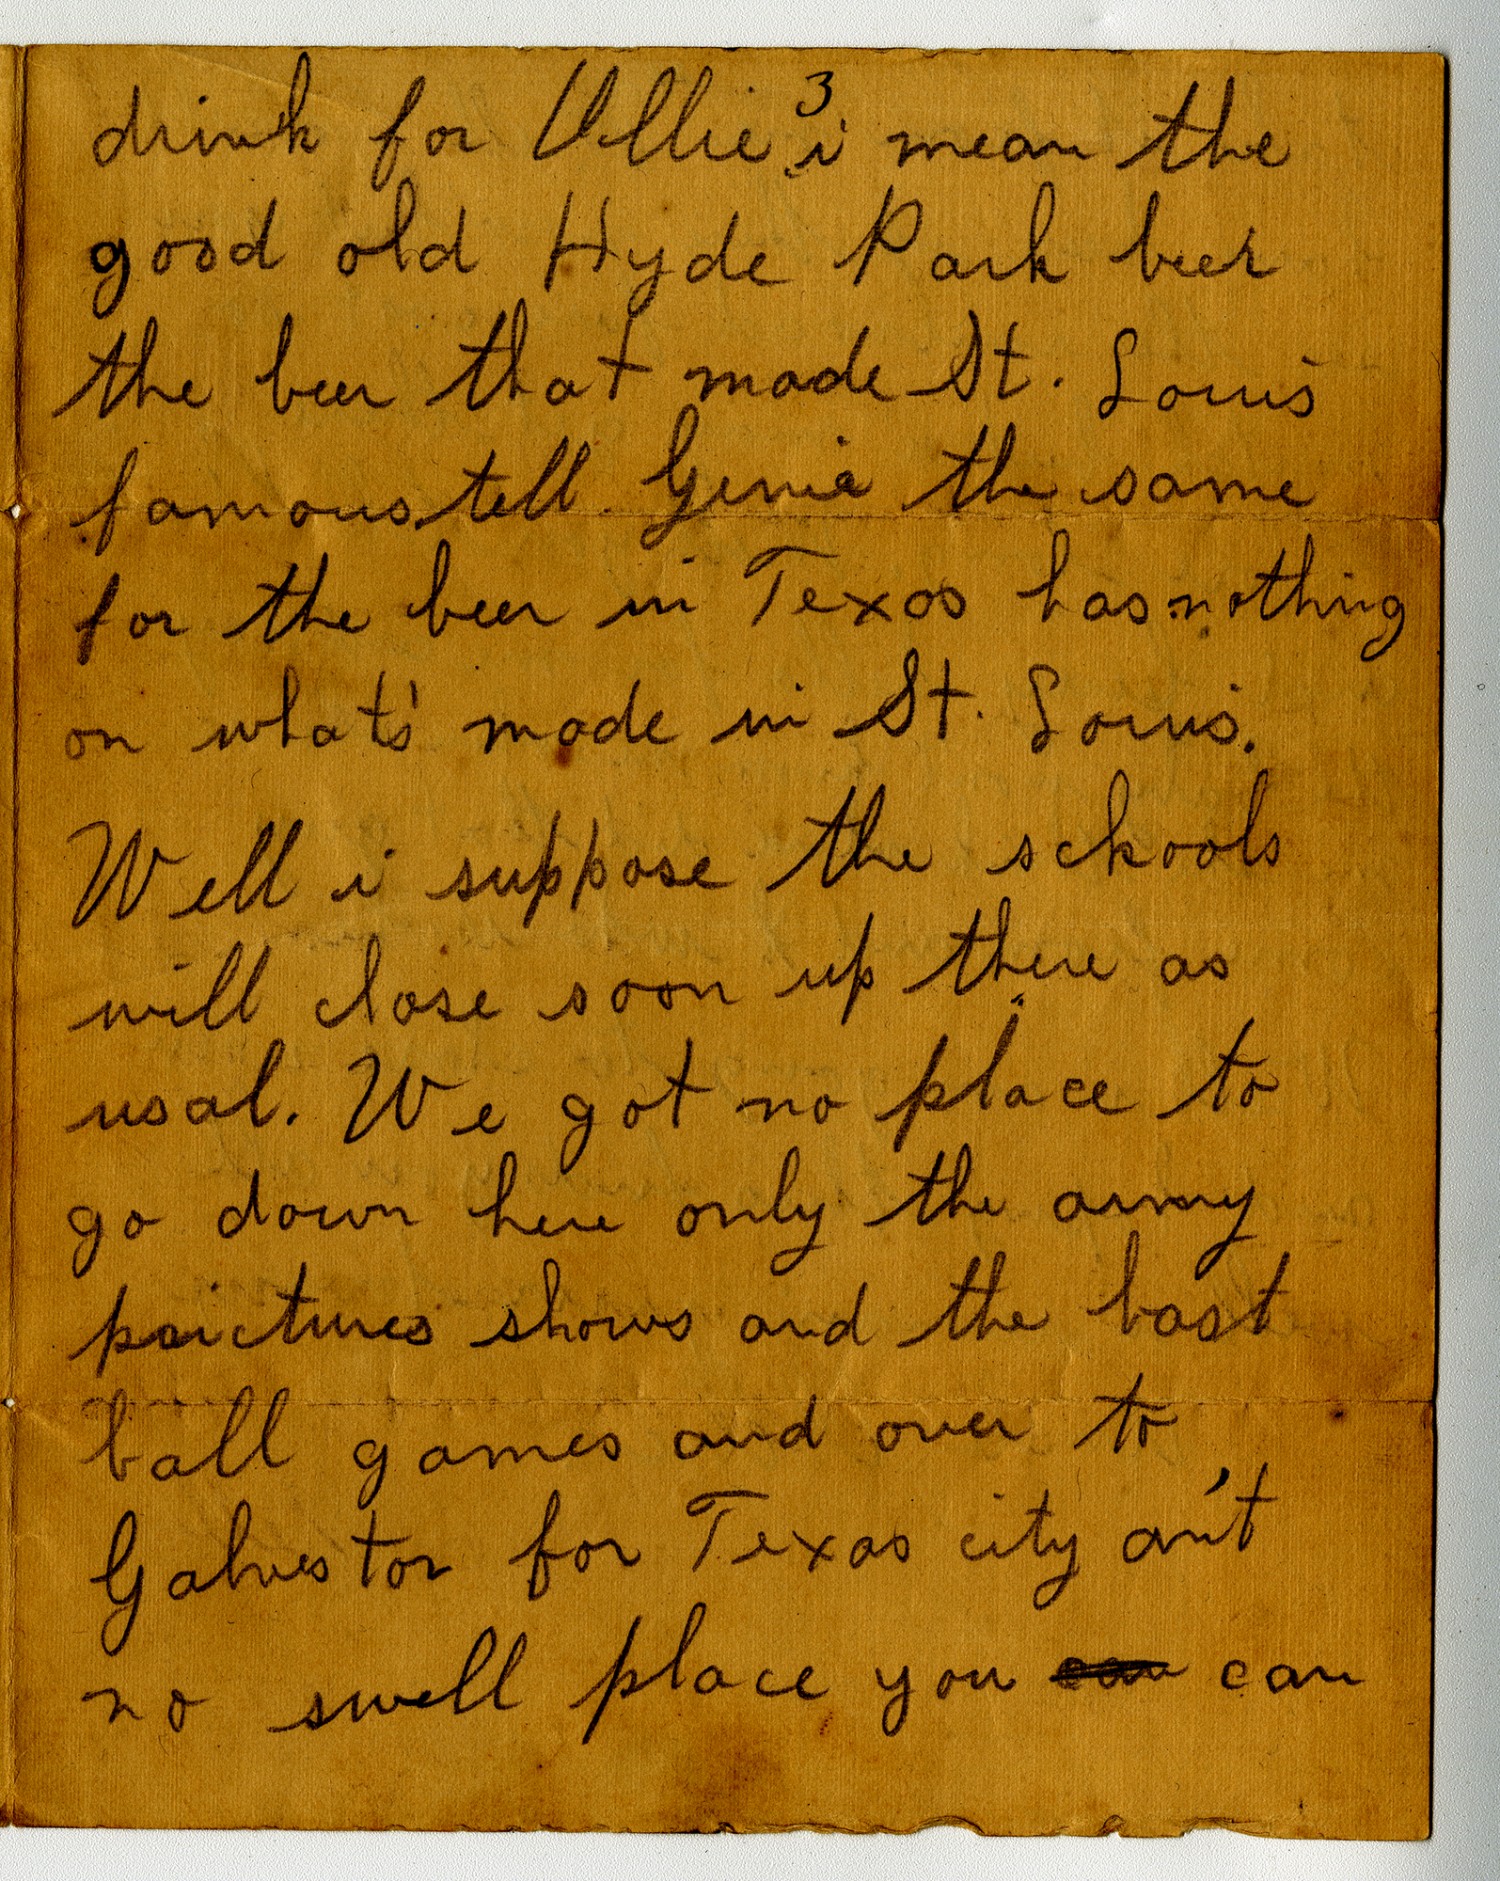 3
drink for Ollie i mean the
good old Hyde Park beer
the beer that made St. Louis
famous tell Genie the same
for the beer in Texas has nothing
on what's made in St. Louis.
Well i suppose the schools
will close soon up there as
usal. We got no place to
go down here only the army
paictures shows and the bast
ball games and over to
Galveston for Texas city an't
no swell place you can can